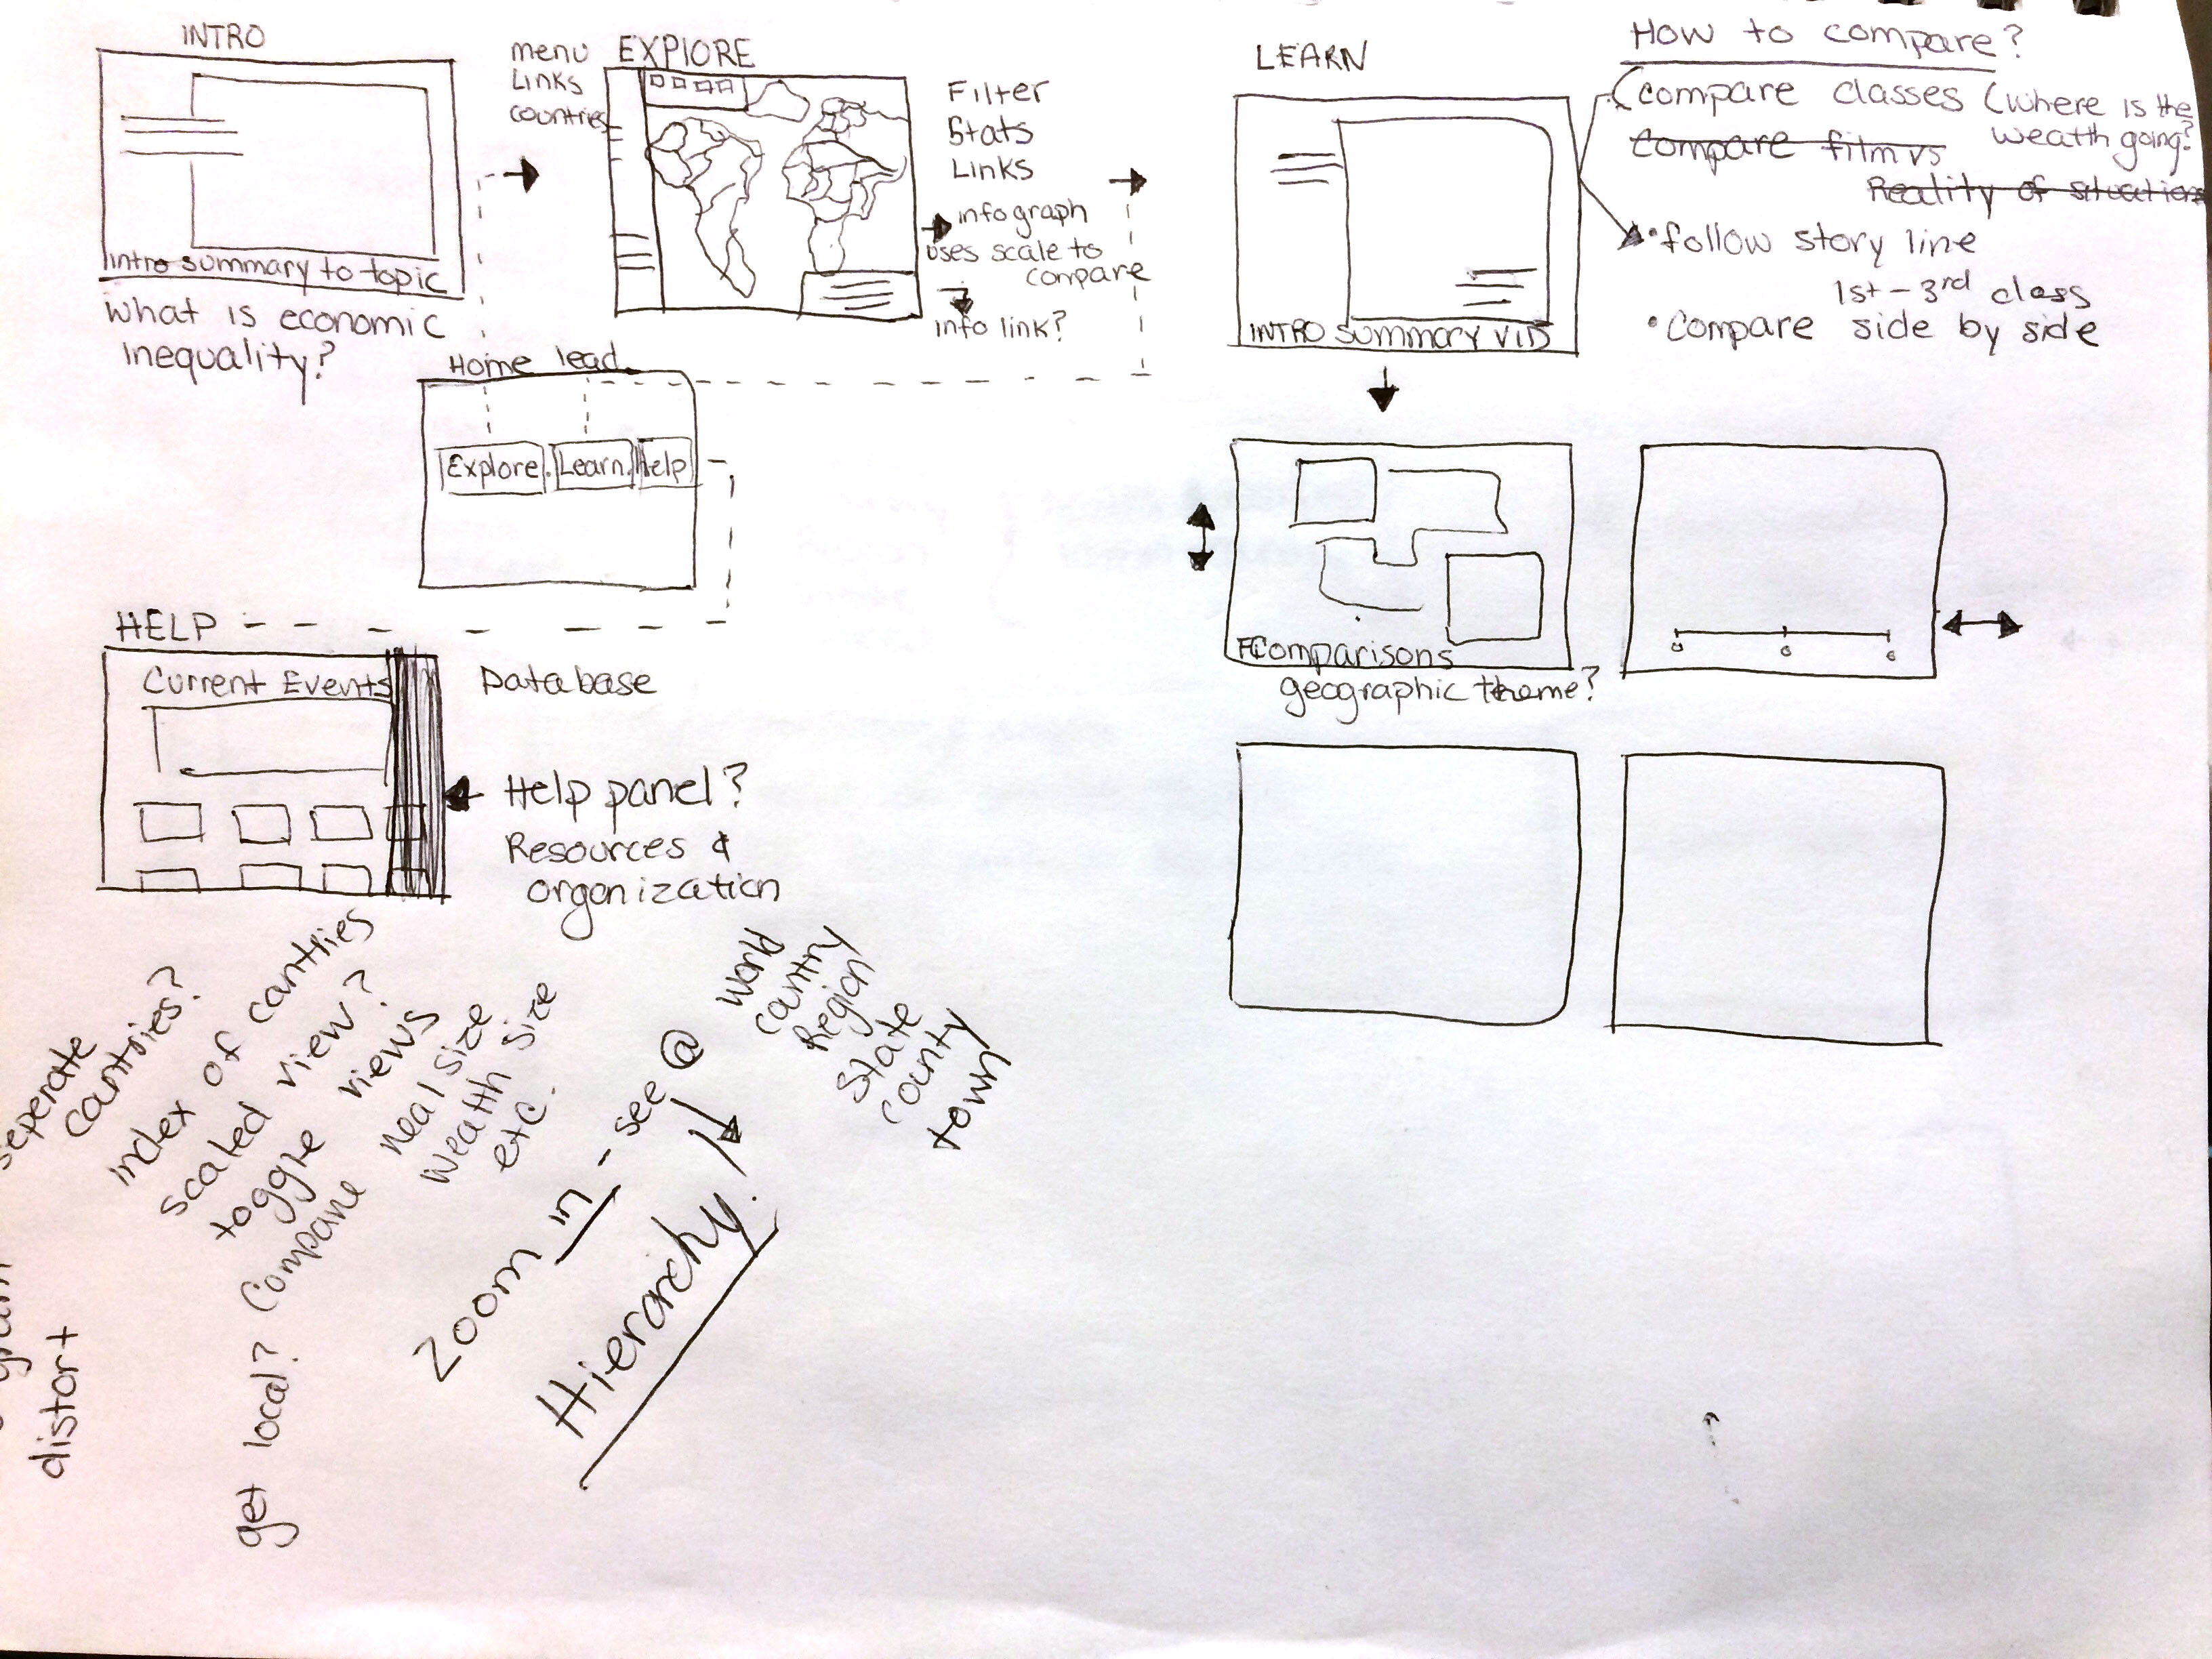 INTRO
Intro summary to topic
What is economic
inequality?
menu
Links
countries
EXPLORE
Filter
Stats
Links
infograph
uses scale to
compare
info link?
Home lead
Explore
Learn
Help
LEARN
INTRO summary VID
How to compare?
compare classes (where is the
wealth going?
Compare film vs
Reality of situation
• follow story line
1st - 3rd class
• Compare side by side
Comparisons
geographic theme?
HELP
Current Events
Database
Help panel?
Resources &
organization
seperate
countries?
index of countries
scaled view?
toggle views
Compare
real size
wealth size
etc.
get local?
distort
Zoom in - see @
world
country
Region
State
county
town
Hierarchy